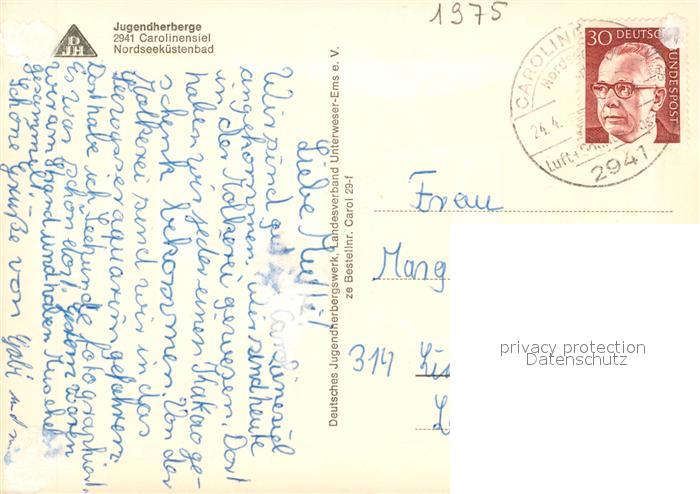 1975
Jugendherberge
2941 Carolinensiel
Nordseeküstenbad
DJH
30 DEUTSCHE BUNDESPOST
CAROLIN
24.4.
Luft
2941
Liebe Mutti!
Wir sind gut in Carolinensiel
angekommen. Wir sind heute
in der Molkerei gewesen. Dort
haben wir jeder einen Kakao ge-
schenk bekommen. Von der
Molkerei sind wir in das
Seewasseraquarium gefahren.
Dort habe ich Seehunde fotographiert.
Es war schön dort. Gestern waren
wir am Strand und haben Muscheln
gesammelt.
Schöne Grüße von Gabi und
Deutsches Jugendherbergswerk, Landesverband Unterweser-Ems e. V.
ze Bestellnr. Carol 29-f
Frau
Marg
314
privacy protection
Datenschutz